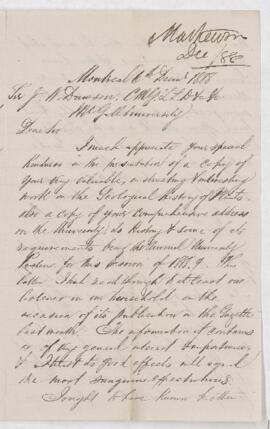 Mathewson
Dec /88
Montreal 6th Decmr 1888
Sir J. W. Dawson, C.M.G. L.L.D. &c &c
McGill University
Dear Sir
I much appreciate your special
kindness in the presentation of a copy of
your very valuable, interesting
work on the Geological history of Plants
also a copy of your comprehensive address
on the University: its history & some of its
requirements being the Annual University
Lecture for this session of 1888.9. This
latter I had read through to at least one
listener in our household on the
occasion of its publication in the Gazette
last month. The information it contains
is of very general interest & importance
& I trust its good effects will equal
the most sanguine expectations.
I ought to have known better